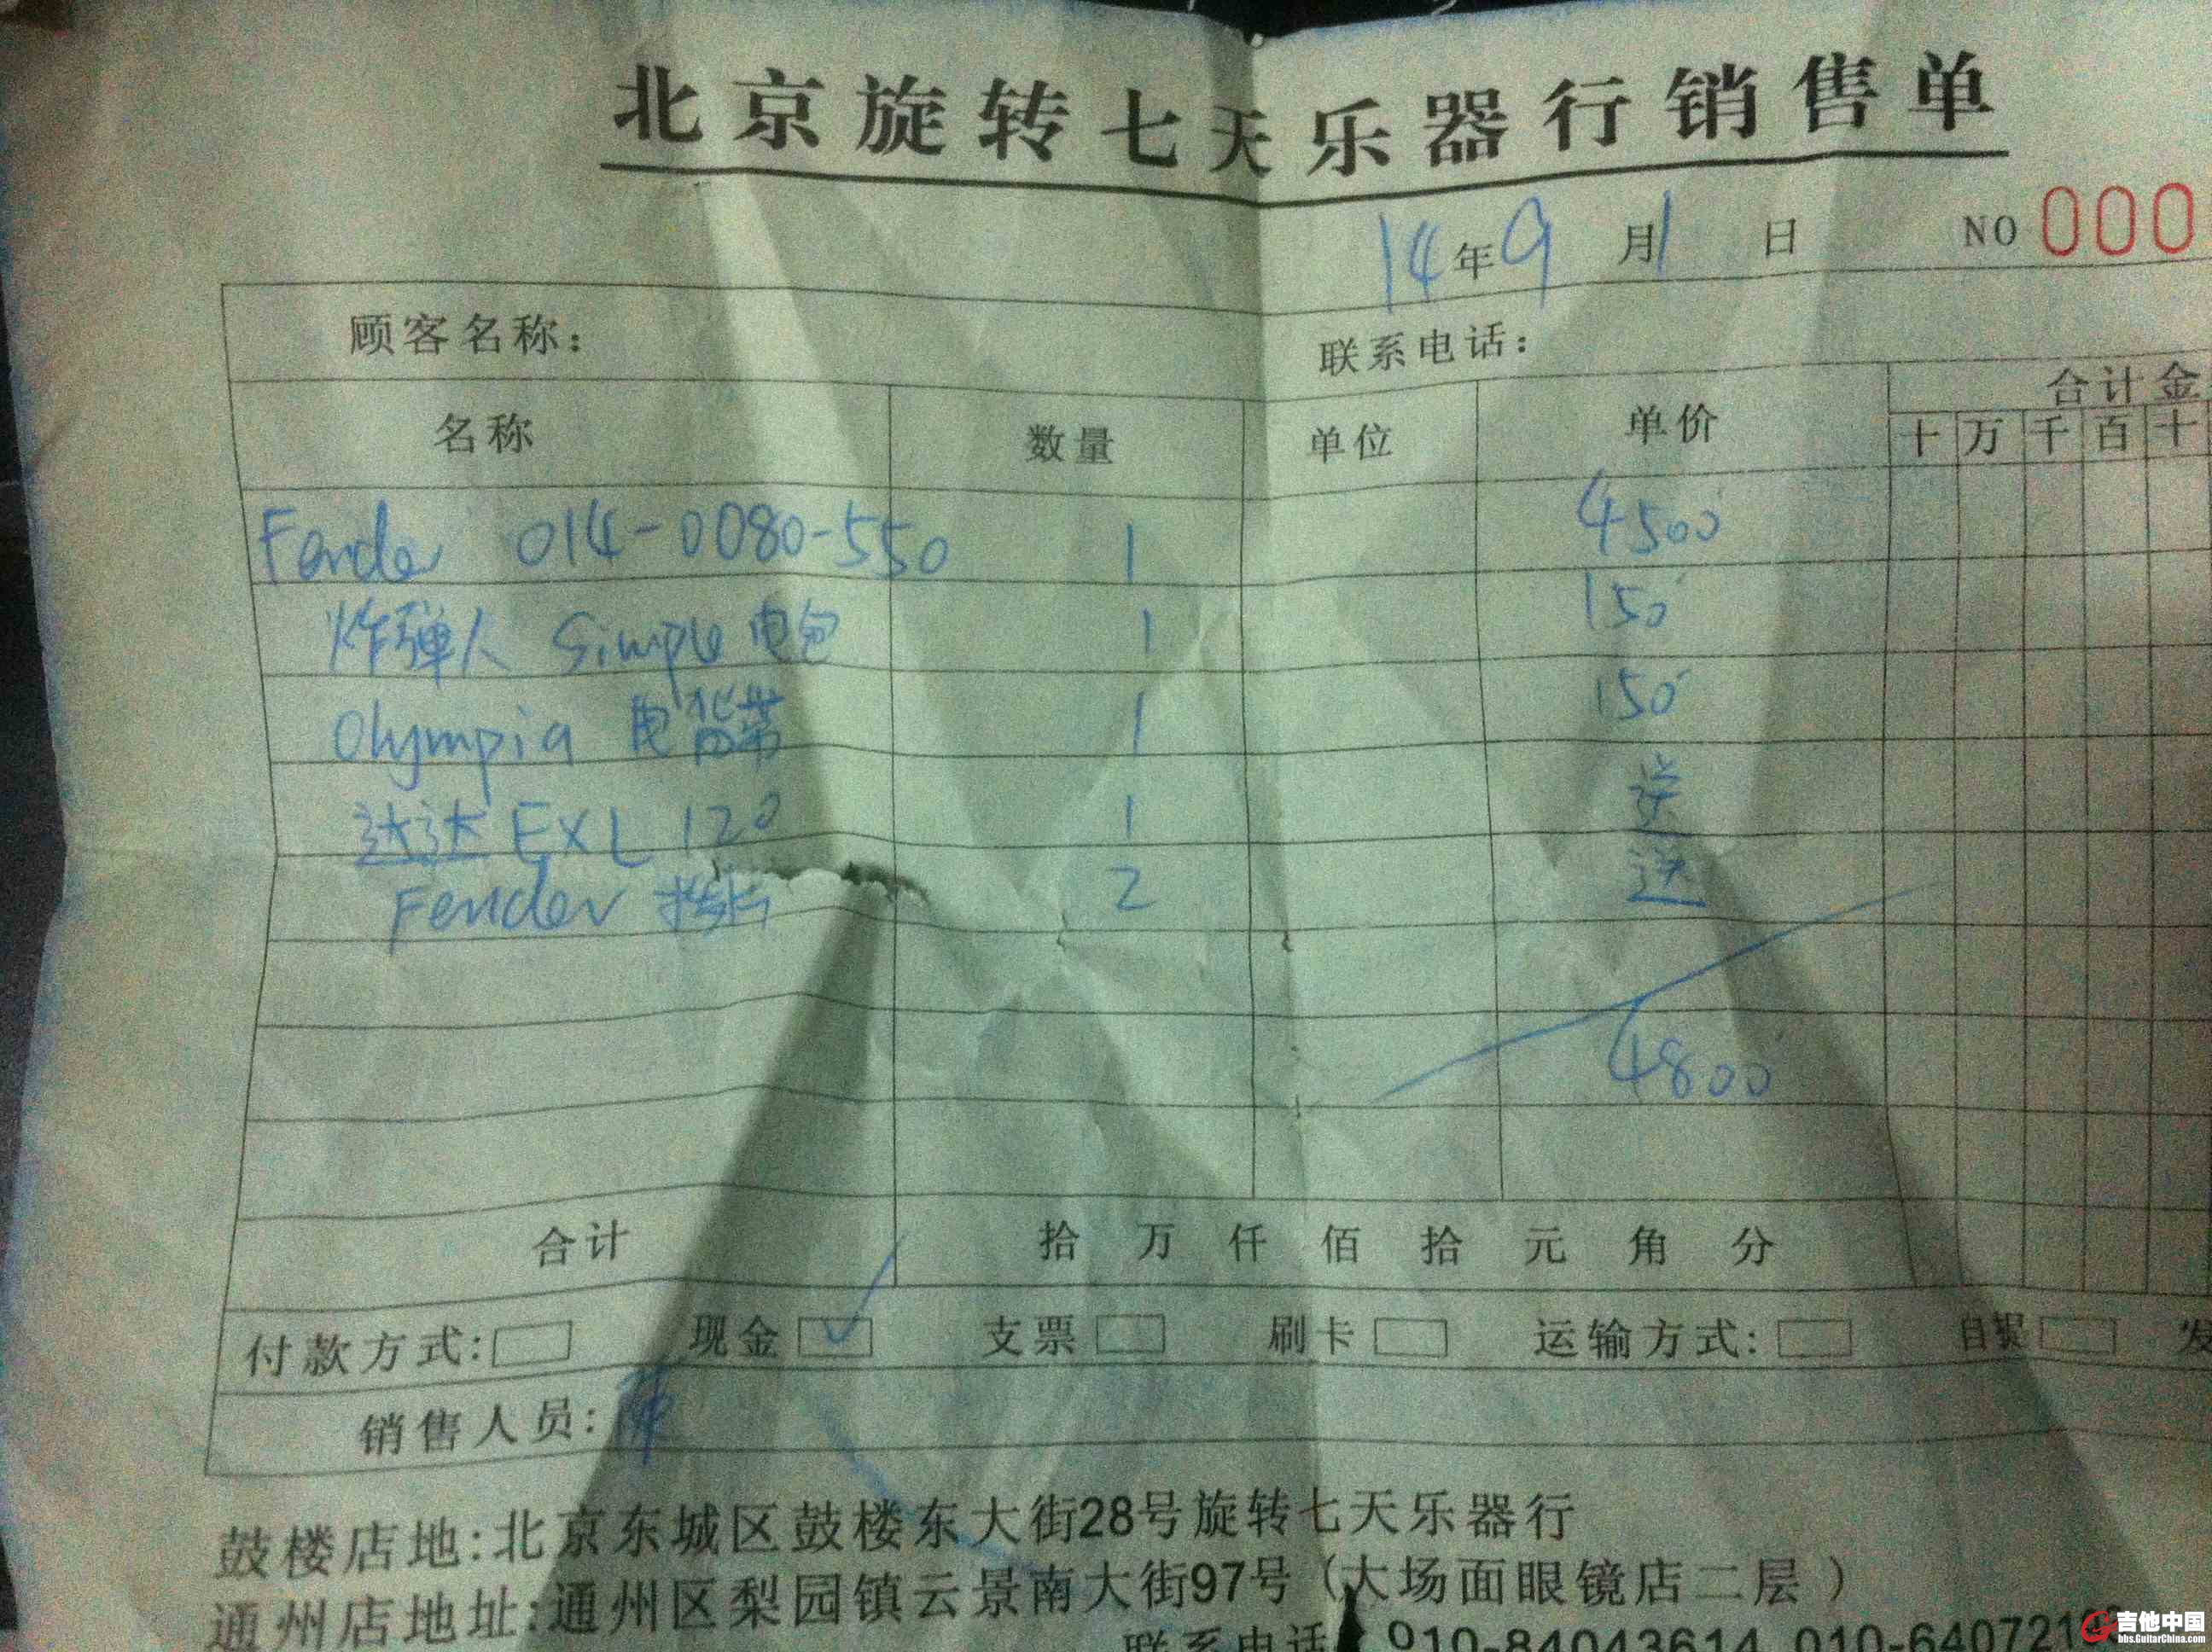 北京旋转七天乐器行销售单
14年9月1日 NO 000
顾客名称： 联系电话：
名称 数量 单位 单价 合计金
十 万 千 百 十
Fender 014-0080-550 1 4500
炸弹人 Simple 电包 1 150
Olympia 电背带 1 150
达达 EXL 120 1 送
Fender 拨片 2 送
4800
合计 拾 万 仟 佰 拾 元 角 分
付款方式: 现金 支票 刷卡 运输方式: 自提 发
销售人员:
鼓楼店地:北京东城区鼓楼东大街28号旋转七天乐器行
通州店地址:通州区梨园镇云景南大街97号（大场面眼镜店二层）
联系电话 010-84043614 010-640721
吉他中国
bbs.GuitarChina.com